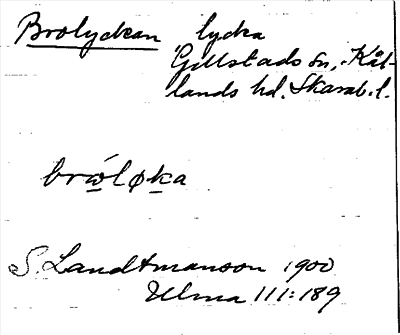 Brolyckan lycka
Gillstads sn, Kål-
lands hd. Skarab. l.
brωꞌløka
S. Landtmanson 1900
Ulma 111:189